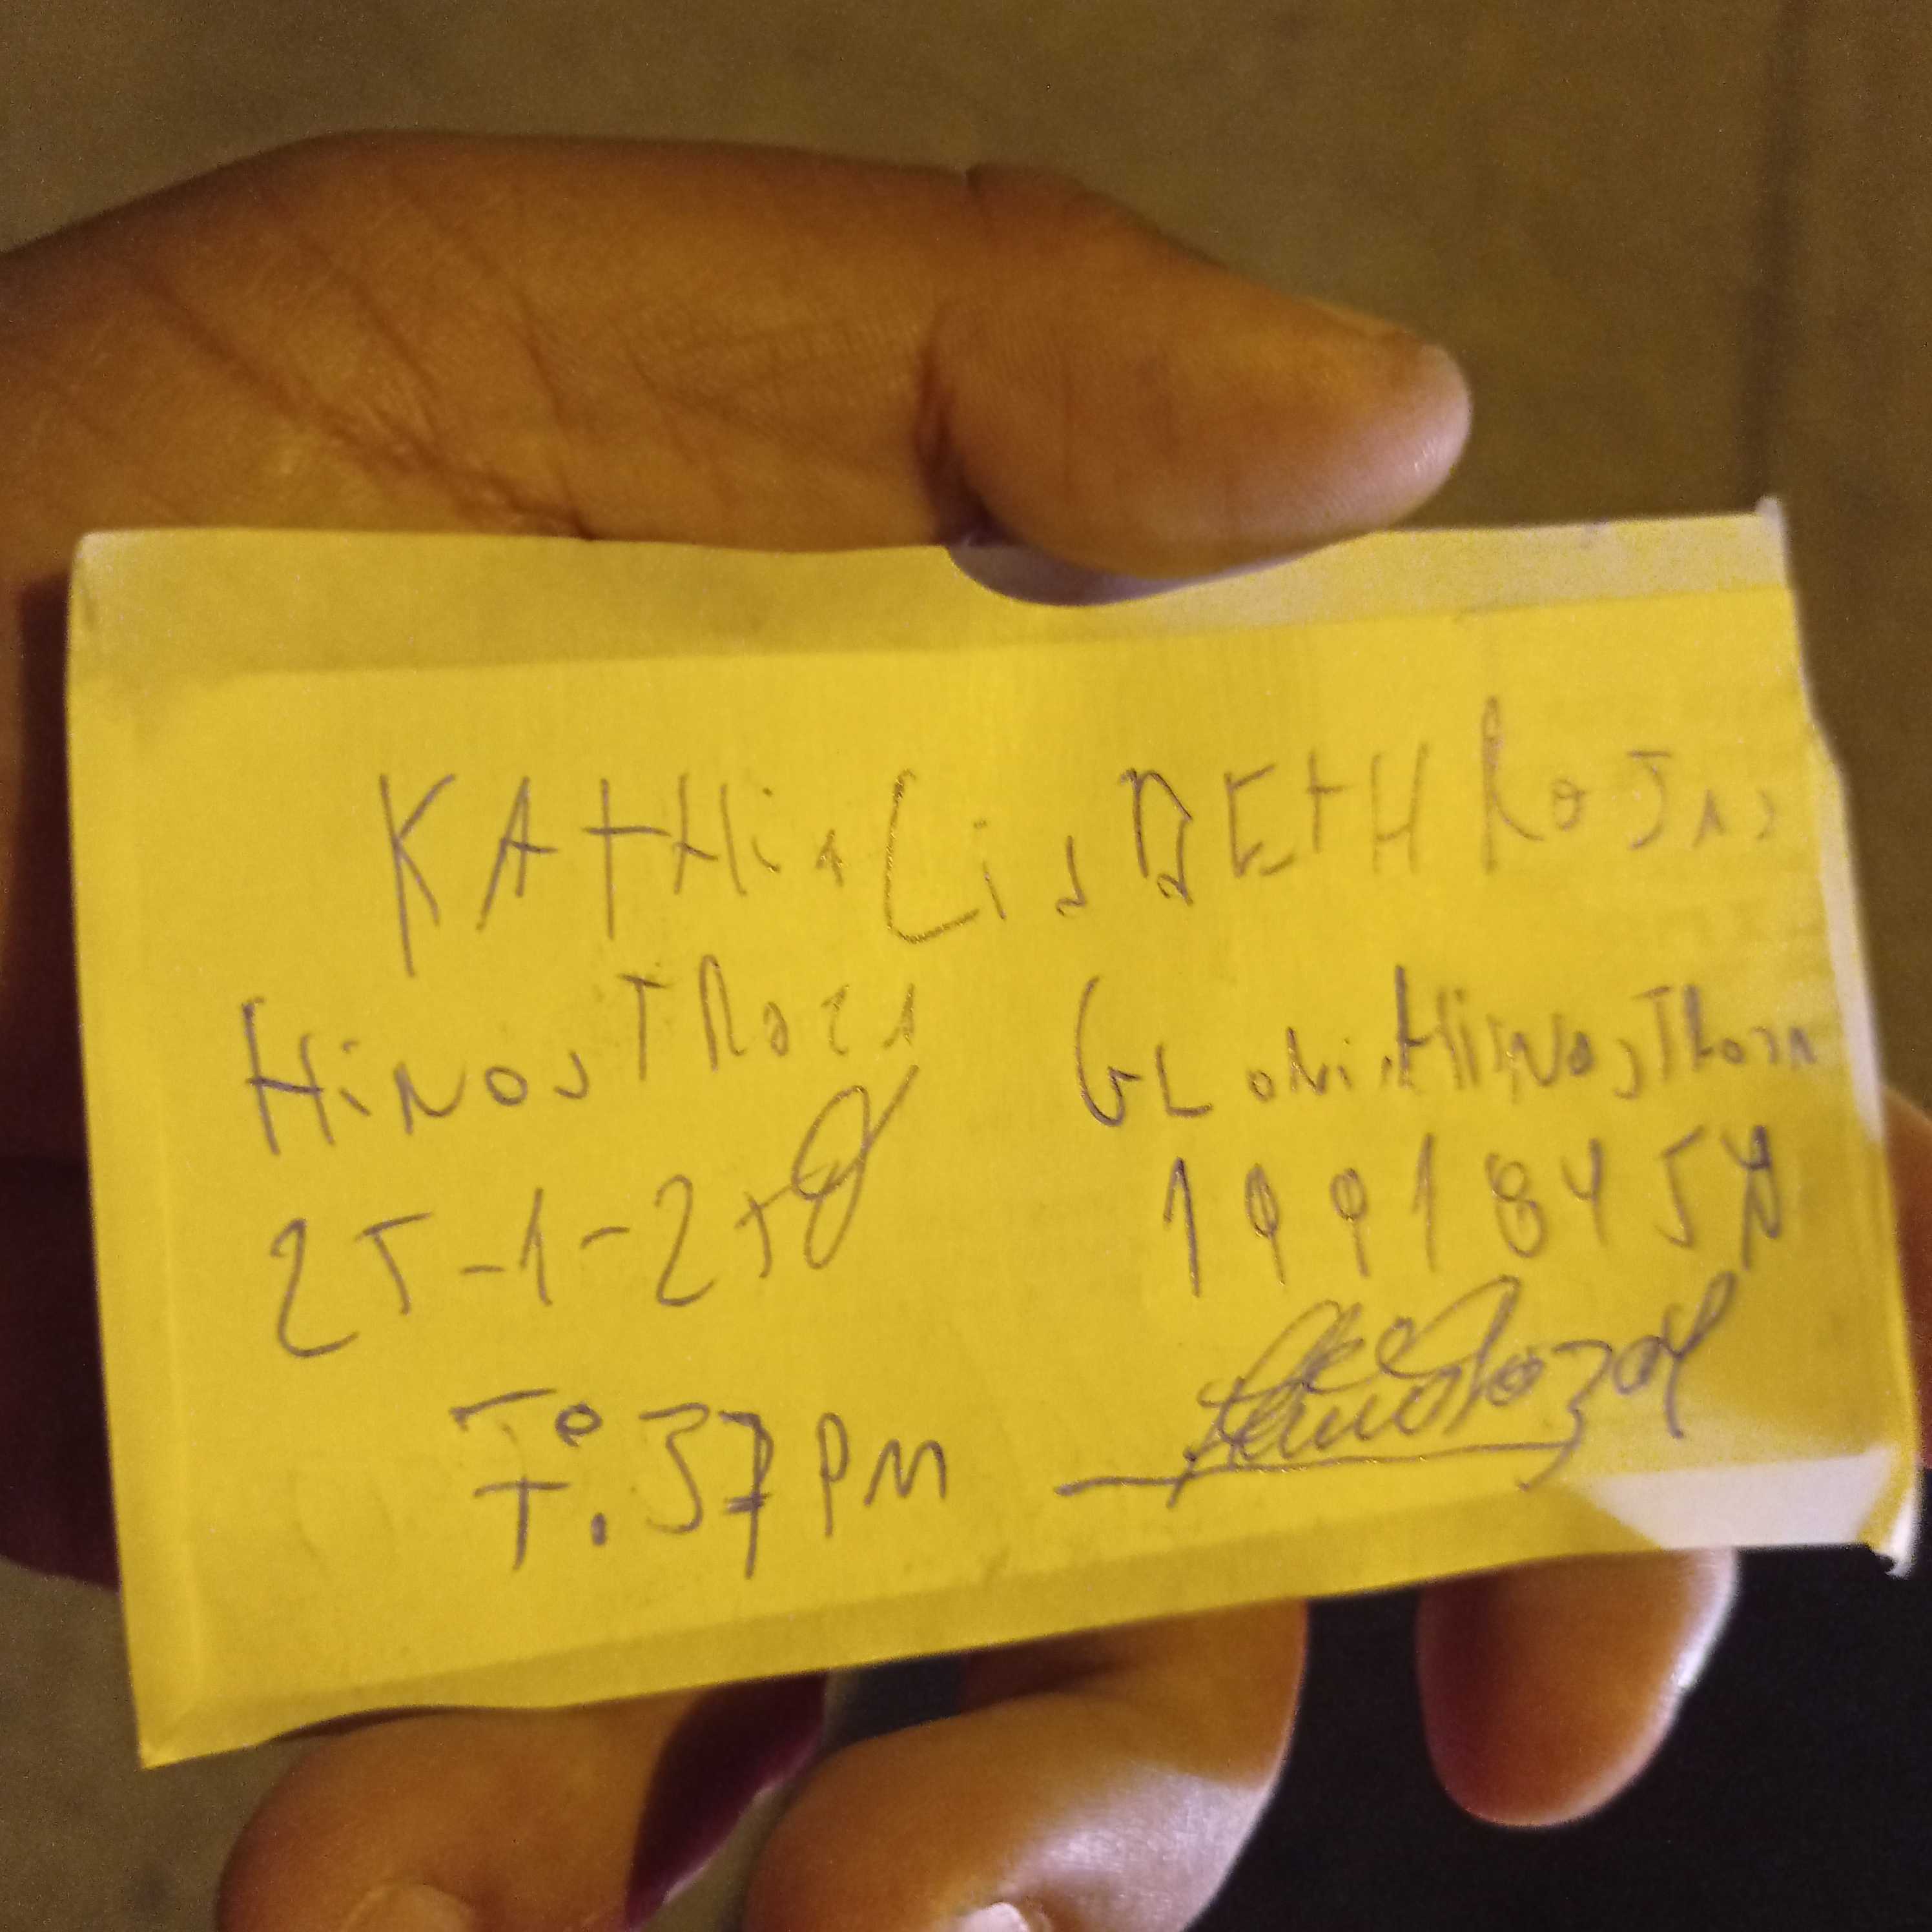 KAtHia LisBEtH RoJas
HiNosTRoza GLoria HiNosTRoza
25-1-25 19918454
7:37 PM